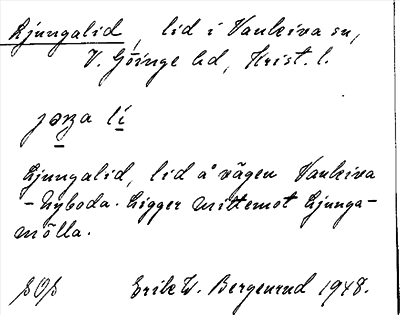 Ljungalid, lid i Vankiva sn,
V. Göinge hd, Krist. l.
Ljungalid, lid å vägen Vankiva
-Nyboda. Ligger mittemot Ljunga-
mölla.
SOS Erik W. Bergenrud 1948.